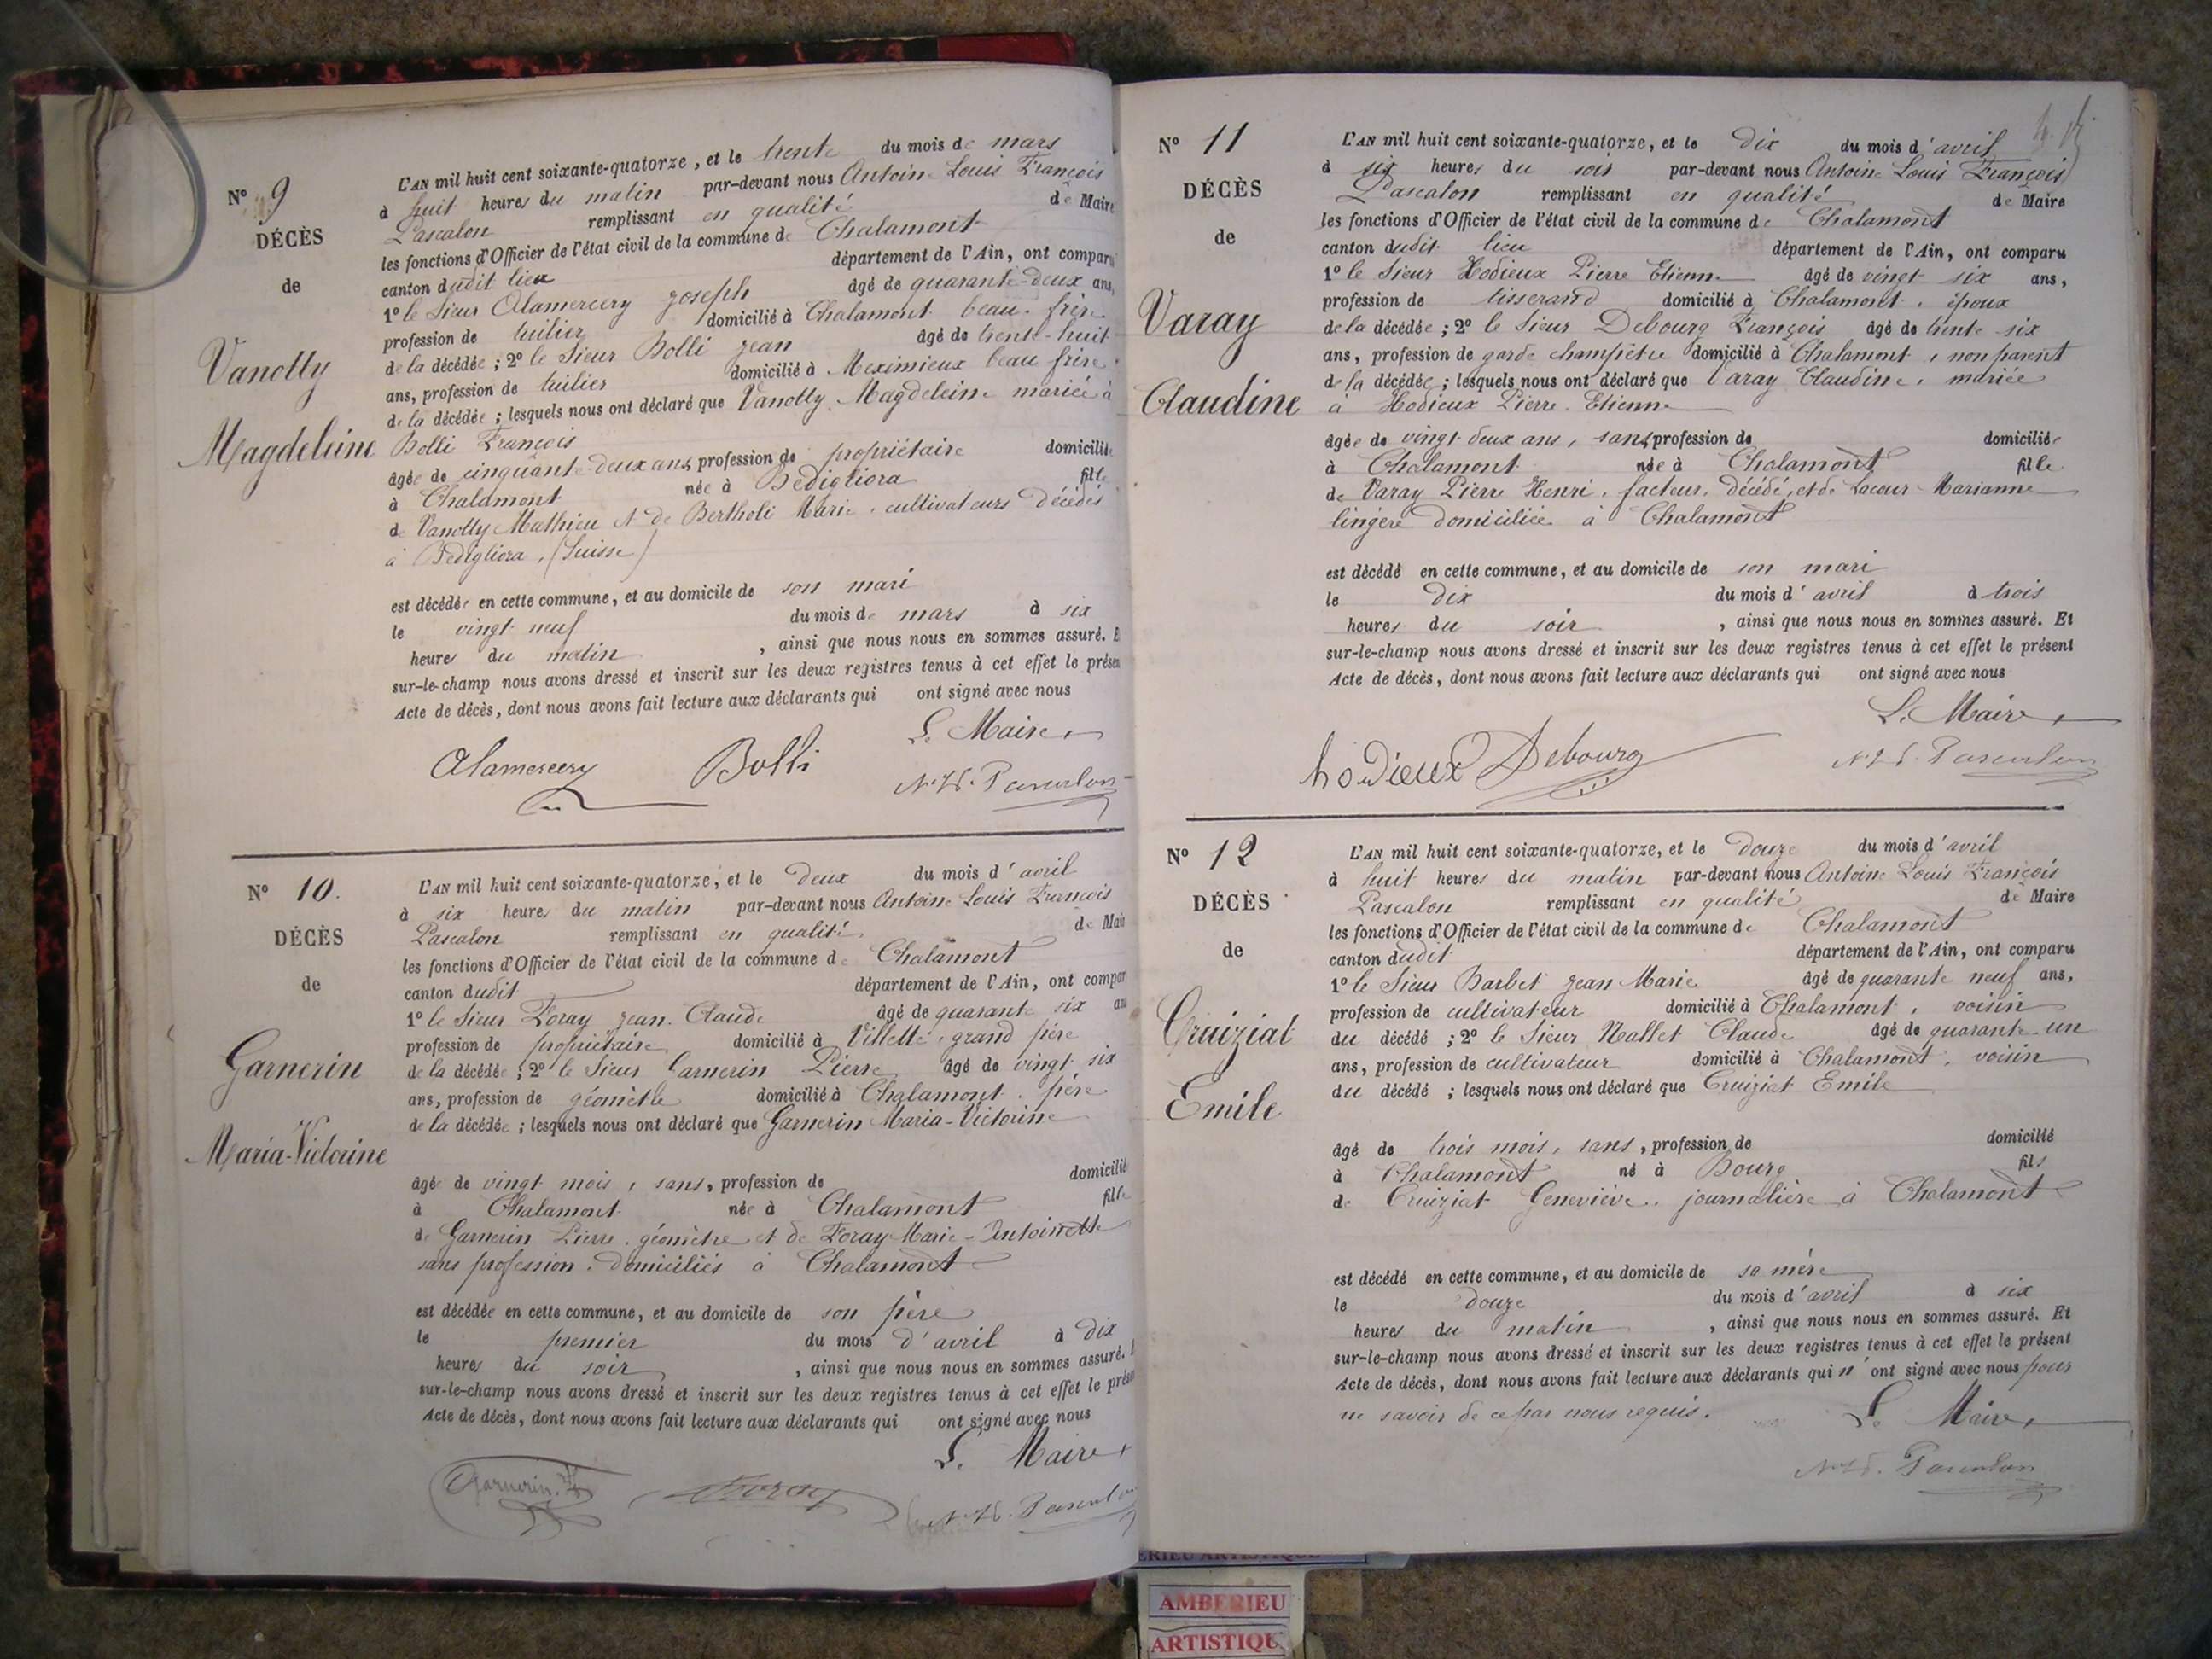 N° 9
DÉCÈS
de
Vanotty
Magdeleine
L'AN mil huit cent soixante-quatorze, et le trente du mois de mars
à huit heures du matin par-devant nous Antoine Louis François
Pascalon remplissant en qualité de Maire
les fonctions d'Officier de l'état civil de la commune de Chalamont
canton dudit lieu département de l'Ain, ont comparu
1° le Sieur Alamercery Joseph âgé de quarante-deux ans,
profession de tuilier domicilié à Chalamont beau-frère
de la décédée ; 2° le Sieur Bolli Jean âgé de trente-huit
ans, profession de tuilier domicilié à Meximieux beau frère
de la décédée ; lesquels nous ont déclaré que Vanotty Magdeleine mariée à
Bolli François
âgée de cinquante-deux ans, profession de propriétaire domiciliée
à Chalamont née à Bedigliora fille
de Vanotty Mathieu et de Bertholi Marie, cultivateurs décédés
à Bedigliora, (Suisse)
est décédée en cette commune, et au domicile de son mari
le vingt neuf du mois de mars à six
heures du matin , ainsi que nous nous en sommes assuré. E
sur-le-champ nous avons dressé et inscrit sur les deux registres tenus à cet effet le présen
Acte de décès, dont nous avons fait lecture aux déclarants qui ont signé avec nous
Le Maire
Alamercery Bolli Pascalon
N° 10.
DÉCÈS
de
Garnerin
Maria-Victorine
L'AN mil huit cent soixante-quatorze, et le deux du mois d'avril
à six heures du matin par-devant nous Antoine Louis François
Pascalon remplissant en qualité de Mair
les fonctions d'Officier de l'état civil de la commune de Chalamont
canton dudit département de l'Ain, ont compar
1° le Sieur Foray Jean Claude âgé de quarante six an
profession de propriétaire domicilié à Villette, grand père
de la décédée ; 2° le Sieur Garnerin Pierre âgé de vingt six
ans, profession de géomètre domicilié à Chalamont, père
de la décédée ; lesquels nous ont déclaré que Garnerin Maria-Victorine
âgée de vingt mois, sans, profession de domicilié
à Chalamont née à Chalamont fille
de Garnerin Pierre, géomètre et de Foray Marie-Antoinette
sans profession, domiciliés à Chalamont
est décédée en cette commune, et au domicile de son père
le premier du mois d'avril à dix
heures du soir , ainsi que nous nous en sommes assuré.
sur-le-champ nous avons dressé et inscrit sur les deux registres tenus à cet effet le prése
Acte de décès, dont nous avons fait lecture aux déclarants qui ont signé avec nous
Le Maire
Garnerin Foray Pascalon
N° 11
DÉCÈS
de
Varay
Claudine
L'AN mil huit cent soixante-quatorze, et le dix du mois d'avril
à six heures du soir par-devant nous Antoine Louis François
Pascalon remplissant en qualité de Maire
les fonctions d'Officier de l'état civil de la commune de Chalamont
canton dudit lieu département de l'Ain, ont comparu
1° le Sieur Hodieux Pierre Etienne âgé de vingt six ans,
profession de tisserand domicilié à Chalamont, époux
de la décédée ; 2° le Sieur Debourg François âgé de trente six
ans, profession de garde champêtre domicilié à Chalamont, non parent
de la décédée ; lesquels nous ont déclaré que Varay Claudine, mariée
à Hodieux Pierre Etienne
âgée de vingt deux ans, sans, profession de domiciliée
à Chalamont née à Chalamont fille
de Varay Pierre Henri, facteur, décédé, et de Lacour Marianne
lingère domiciliée à Chalamont
est décédé en cette commune, et au domicile de son mari
le dix du mois d'avril à trois
heures du soir , ainsi que nous nous en sommes assuré. Et
sur-le-champ nous avons dressé et inscrit sur les deux registres tenus à cet effet le présent
Acte de décès, dont nous avons fait lecture aux déclarants qui ont signé avec nous
Le Maire
hodieux Debourg Pascalon
N° 12
DÉCÈS
de
Cruiziat
Emile
L'AN mil huit cent soixante-quatorze, et le douze du mois d'avril
à huit heures du matin par-devant nous Antoine Louis François
Pascalon remplissant en qualité de Maire
les fonctions d'Officier de l'état civil de la commune de Chalamont
canton dudit département de l'Ain, ont comparu
1° le Sieur Barbet Jean Marie âgé de quarante neuf ans,
profession de cultivateur domicilié à Chalamont, voisin
du décédé ; 2° le Sieur Nallet Claude âgé de quarante-un
ans, profession de cultivateur domicilié à Chalamont, voisin
du décédé ; lesquels nous ont déclaré que Cruiziat Emile
âgé de trois mois, sans, profession de domicilié
à Chalamont né à Bourg fils
de Cruiziat Geneviève, journalière à Chalamont
est décédé en cette commune, et au domicile de sa mère
le douze du mois d'avril à six
heures du matin , ainsi que nous nous en sommes assuré. Et
sur-le-champ nous avons dressé et inscrit sur les deux registres tenus à cet effet le présent
Acte de décès, dont nous avons fait lecture aux déclarants qui n'ont signé avec nous pour
ne savoir de ce par nous requis.
Le Maire
Pascalon
AMBERIEU
ARTISTIQU